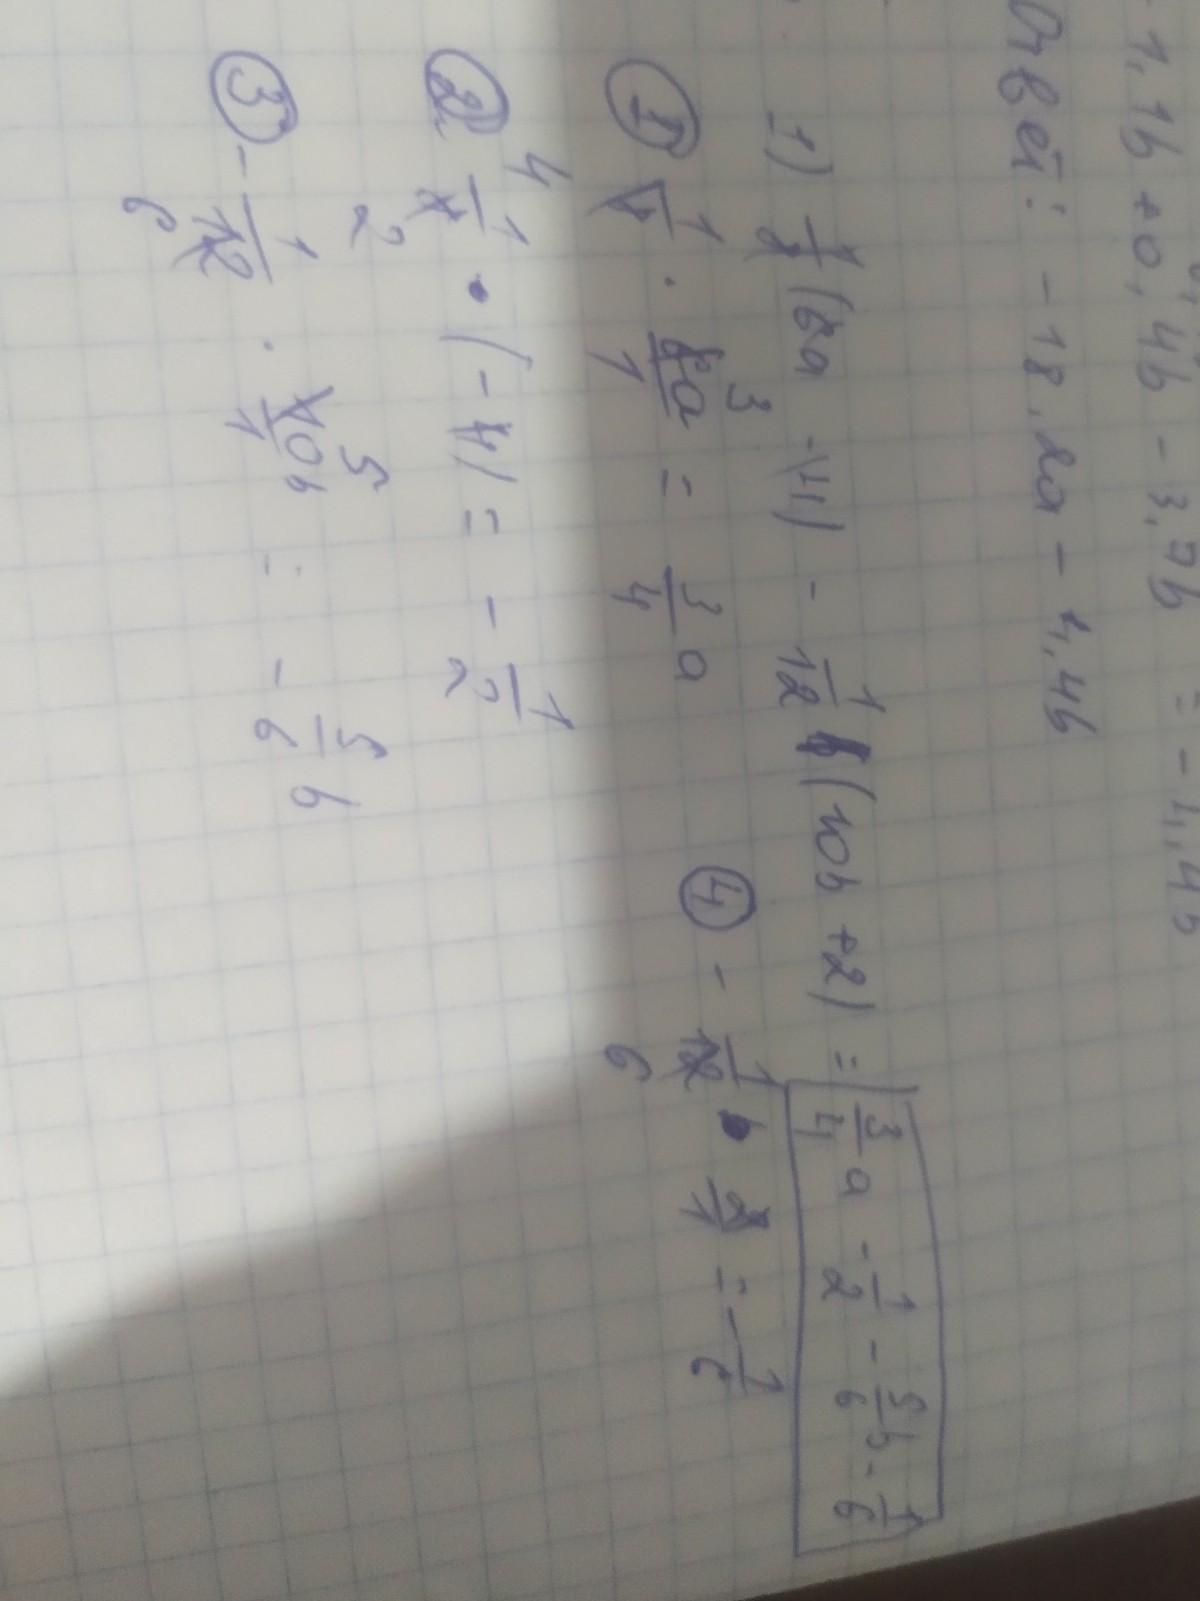 - 1,1b + 0,4b - 3,7b = - 1,4b
Ответ: - 18,2a - 4,4b
1) (6a - 4) - 1/12 (10b + 2) = 3/4 a - 1/2 - 5/6 b - 1/6
① 1 · 6a/1 3 = 3/4 a
② 4 1 2 · (-4) = - 1/2
③ - 1/12 6 · 10b/1 5 = - 5/6 b
④ - 1/12 6 · 2/1 = - 1/6